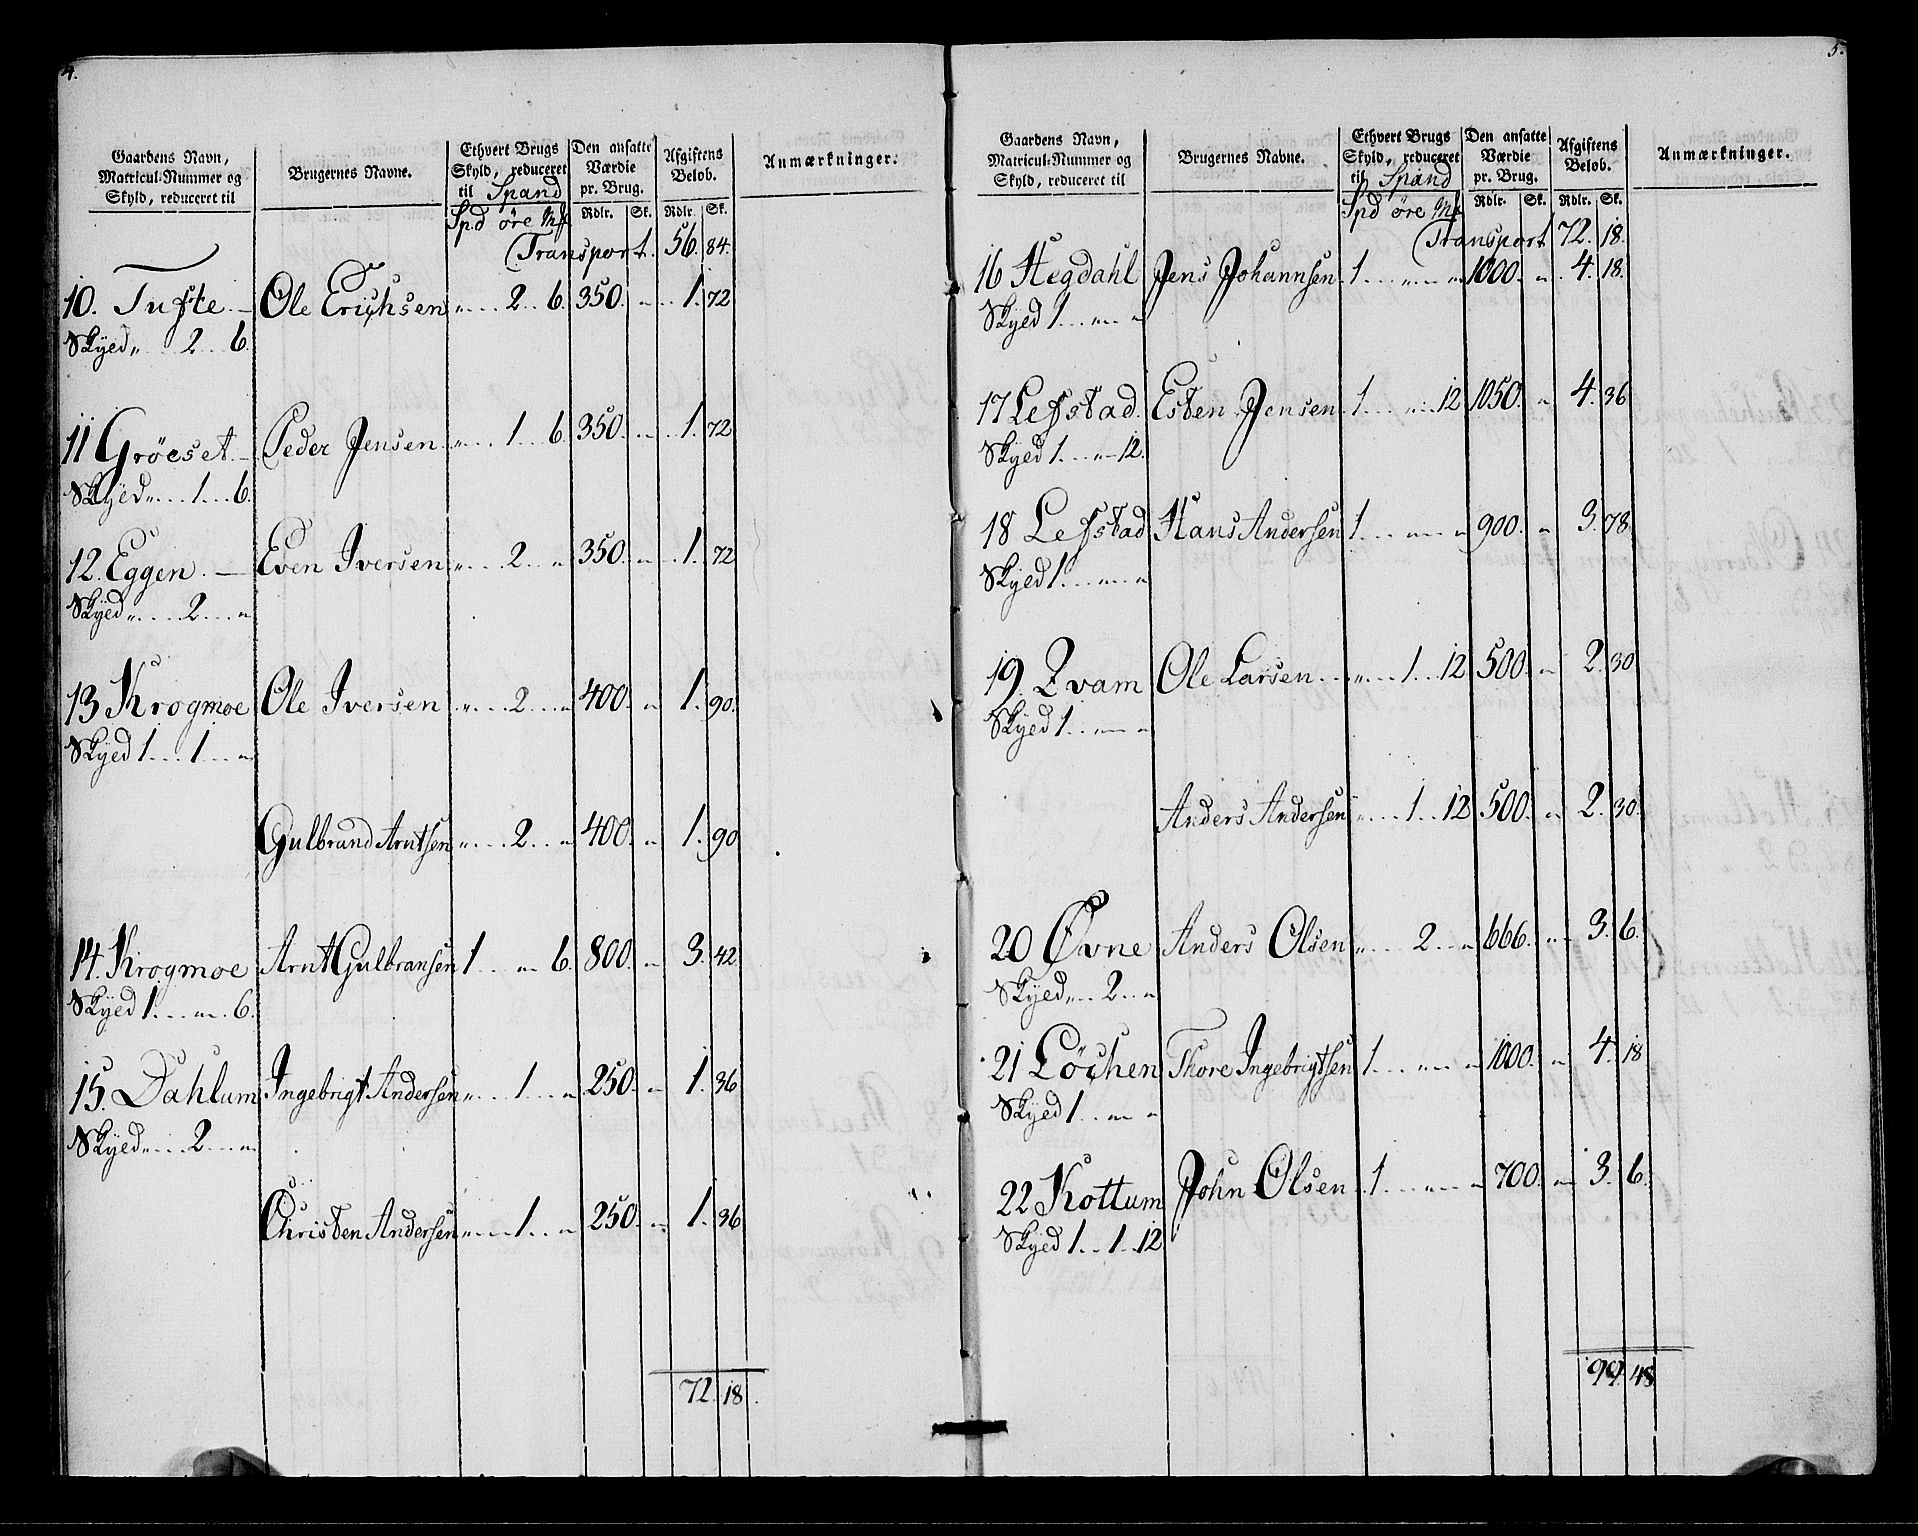 4.
Gaardens Navn, Matricul-Nummer og Skyld, reduceret til | Brugernes Navne. | Ethvert Brugs Skyld, reduceret til Spand | Den ansatte Værdie pr. Brug. | Afgiftens Beløb. | Anmærkninger.
Spd øre Mk | Rdlr. | Sk. | Rdlr. | Sk.
Transport. 56. 84.
10. Tufte. — Ole Erichsen „ . . . 2 . . 6. 350. „ . . 1. 72
Skyed „ . . . 2 . . . 6.
11 Gröeset. — Peder Jensen. „ . . . 1 . . 6. 350. „ . . 1. 72
Skÿed „ . . . 1 . . . 6.
12. Eggen. — Even Iversen „ . . . 2 . . „ 350. „ . . 1. 72
Skÿed „ . . . 2 . . . „
13 Krogmoe Ole Iversen „ . . . 2 . . . „ 400. „ 1. 90.
Skÿed 1 . . . 1 . . . „
Gulbrand Arntsen „ . . . 2 . . „ 400. „ 1. 90
14. Krogmoe Arnt Gulbransen 1 . . „ 6. 800. „ 3. 42
Skÿed 1 . . . „ . 6.
15. Dahlum Ingebrigt Andersen „ . . . 1 . . . „ 250. „ 1. 36
Skÿed „ . . . 2 . . . „
Christen Andersen „ . . . 1 . . „ 250. „ 1. 36
72. 18.
5.
Gaardens Navn, Matricul-Nummer og Skyld, reduceret til | Brugernes Navne. | Ethvert Brugs Skyld, reduceret til Spand | Den ansatte Værdie pr. Brug. | Afgiftens Beløb. | Anmærkninger.
Spd øre Mk | Rdlr. | Sk. | Rdlr. | Sk.
Transport 72. 18.
16 Hegdahl Jens Johannsen 1 . . . „ . . „ 1000. „ 4. 18.
Skÿed 1 . . . „ . . „
17 Lefstad. Esten Jensen 1 . . . „ . . 12 1050. „ 4. 36
Skÿed 1 . . . „ 12.
18 Lefstad Hans Andersen 1 . . . „ . . „ 900. „ 3. 78
Skÿed 1 . . . „ . . „
19. Qvam Ole Larsen . . . „ . . . 1 . . 12 500. „ 2. 30
Skÿed 1 . . „ . . „
Anders Andersen „ . . . 1 . . 12 500. „ 2. 30.
20 Øvne Anders Olsen „ . . . 2 . . „ 666. „ 3. 6.
Skÿed „ . . 2 . . „
21 Löchen Thore Ingebrigtsen 1 . . . „ . . „ 1000. „ 4. 18
Skÿed 1 . . „ . „
22 Kottum John Olsen 1 . . . „ . . „ 700. „ 3. 6.
Skÿed 1 . . 1 . . 12
99. 48